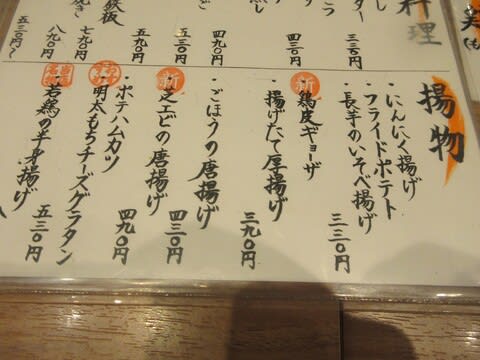 料理
揚物
・にんにく揚げ
・フライドポテト
・長芋のいそべ揚げ
三三〇円
新 鶏皮ギョーザ
・揚げたて厚揚げ
三九〇円
・ごぼうの唐揚げ
新 芝エビの唐揚げ
四三〇円
・ポテハムカツ
四九〇円
明太もちチーズグラタン
・若鶏の半身揚げ
五三〇円
四三〇円
四九〇円
五三〇円
鉄板
五九〇円
七九〇円
八九〇円
五三〇円〜